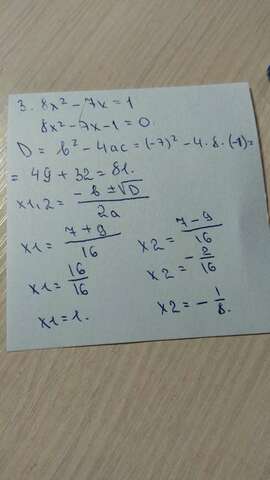 3. 8x² - 7x = 1
8x² - 7x - 1 = 0.
D = b² - 4ac = (-7)² - 4 · 8 · (-1) =
= 49 + 32 = 81.
x1,2 = (-b ± √D) / 2a
x1 = (7 + 9) / 16
x1 = 16/16
x1 = 1.
x2 = (7 - 9) / 16
x2 = -2/16
x2 = -1/8.